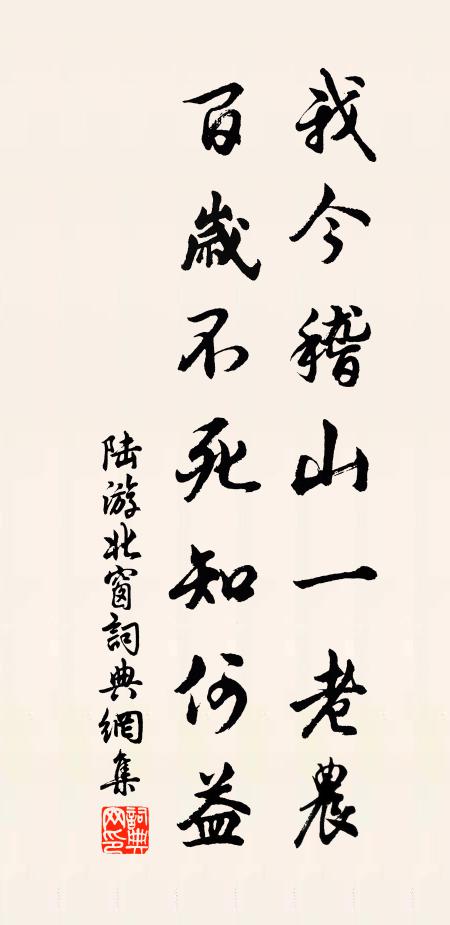 我今稽山一老農
百歲不死知何益
陸游北窗詞典網集
詞典網印